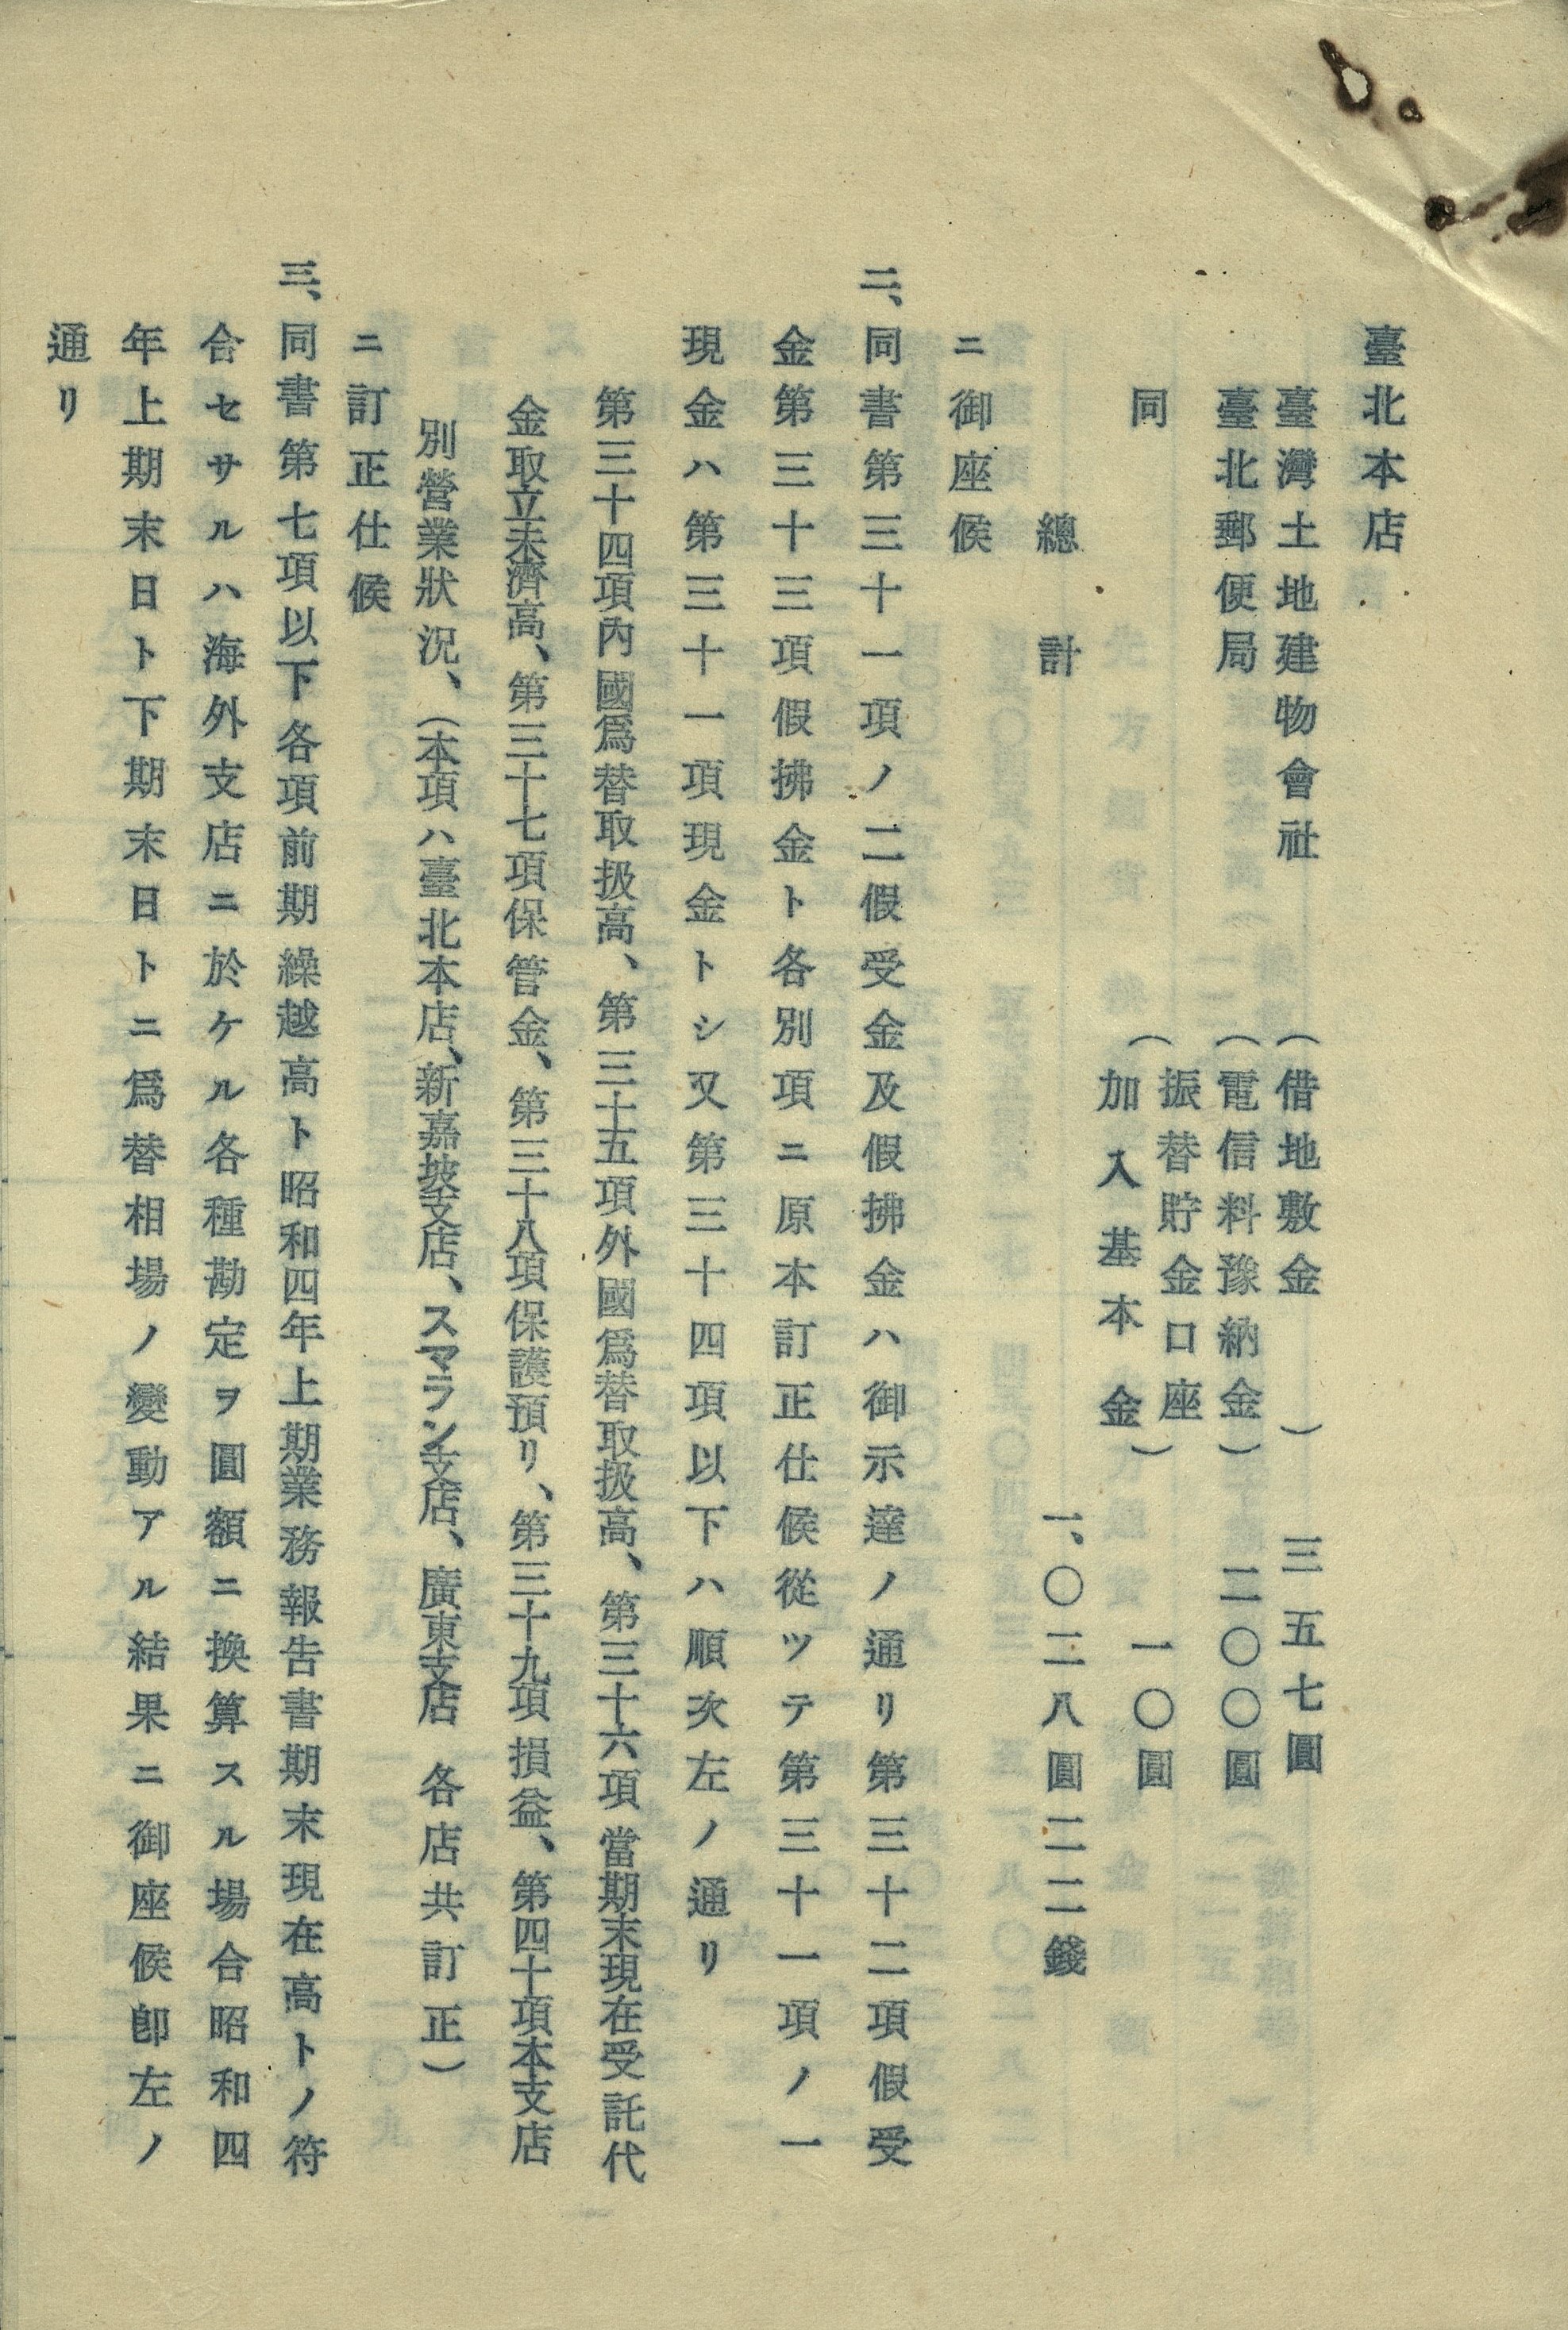 臺北本店
臺灣土地建物會社 (借地敷金) 三五七圓
臺北郵便局 (電信料豫納金) 二〇〇圓
同 (振替貯金口座加入基本金) 一〇圓
總計 一、〇二八圓二二錢
ニ御座候
二、同書第三十一項ノ二假受金及假拂金ハ御示達ノ通リ第三十二項假受
金第三十三項假拂金ト各別項ニ原本訂正仕候從ツテ第三十一項ノ一
現金ハ第三十一項現金トシ又第三十四項以下ハ順次左ノ通リ
第三十四項內國爲替取扱高、第三十五項外國爲替取扱高、第三十六項當期末現在受託代
金取立未濟高、第三十七項保管金、第三十八項保護預リ、第三十九項損益、第四十項本支店
別營業狀況、(本項ハ臺北本店、新嘉坡支店、スマラン支店、廣東支店 各店共訂正)
ニ訂正仕候
三、同書第七項以下各項前期繰越高ト昭和四年上期業務報告書期末現在高トノ符
合セサルハ海外支店ニ於ケル各種勘定ヲ圓額ニ換算スル場合昭和四
年上期末日ト下期末日トニ爲替相場ノ變動アル結果ニ御座候卽左ノ
通リ